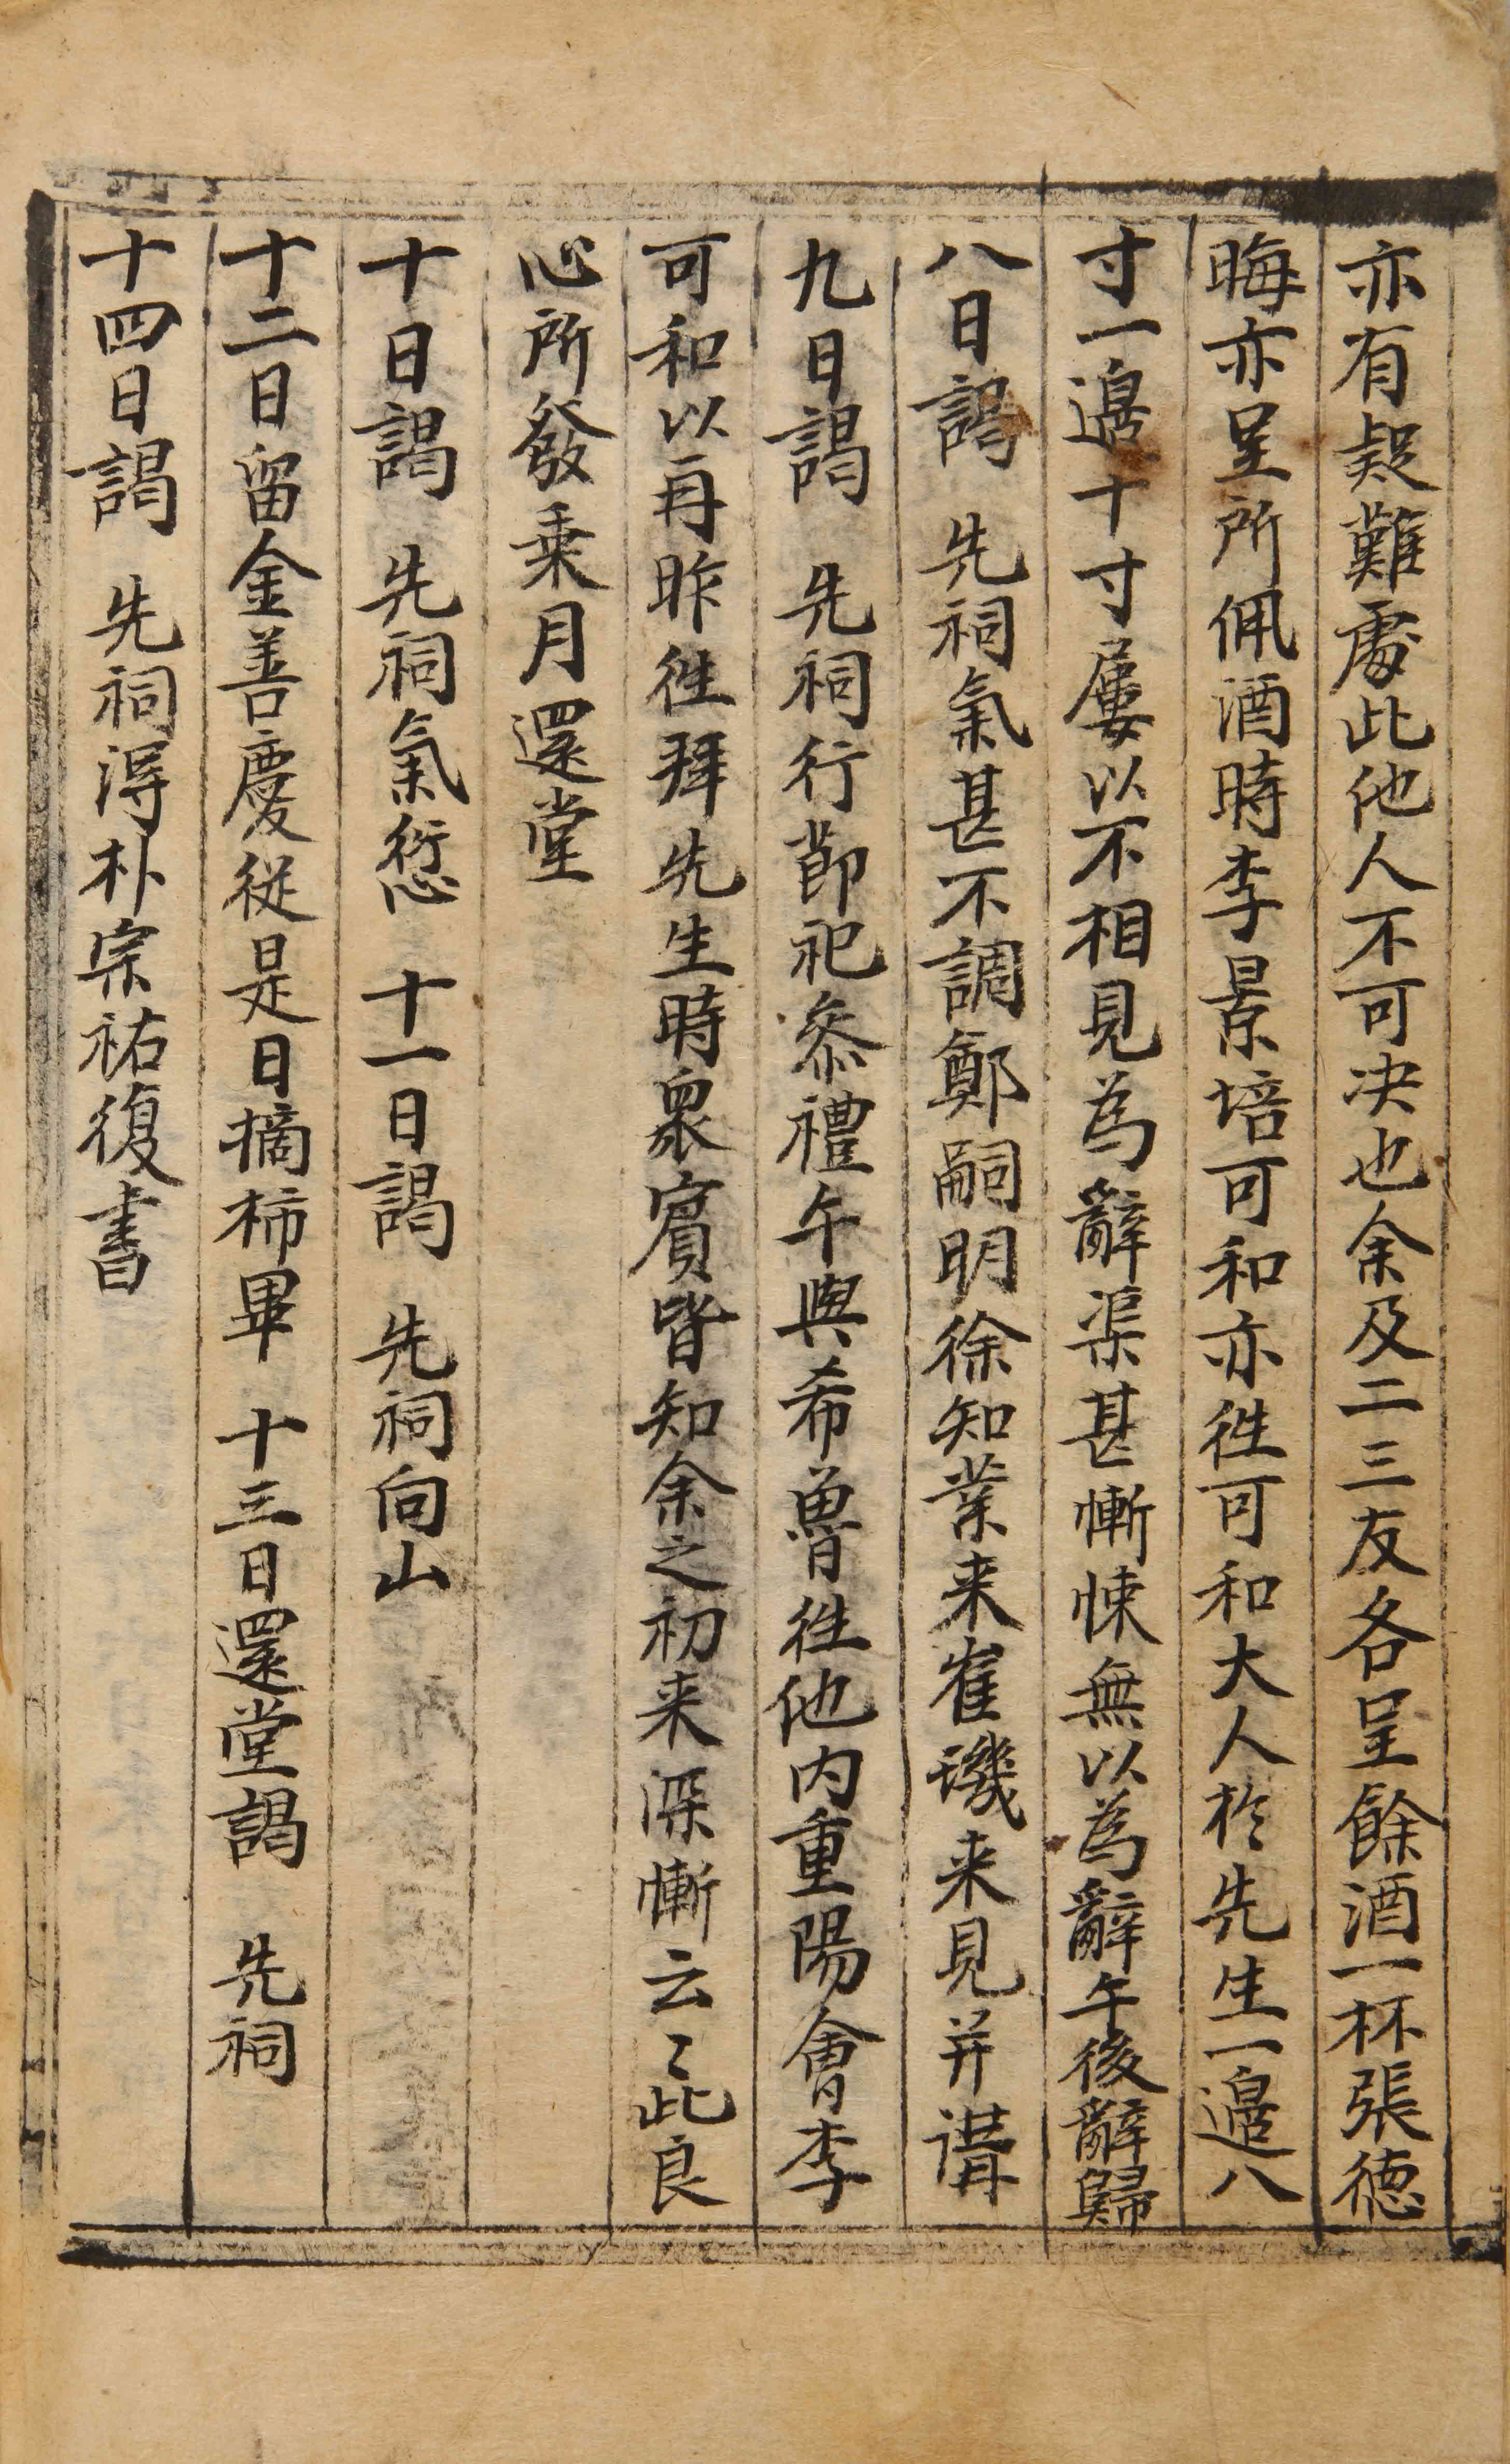 亦有疑難處此他人不可决也余及二三友各呈餘酒一杯張德
晦亦呈所佩酒時李景培可和亦徃可和大人於先生一邉八
寸一邉十寸屢以不相見為辭渠甚慚悚無以為辭午後辭歸
八日謁　先祠氣甚不調鄭嗣明徐知業来崔璣来見并講
九日謁　先祠行節祀叅禮午與希魯徃他内重陽會李
可和以再昨徃拜先生時衆賓皆知余之初来深慚云〻此良
心所發乗月還堂
十日謁　先祠氣愆　十一日謁　先祠向山
十二日留金善慶従是日摘柿畢　十三日還堂謁　先祠
十四日謁　先祠淂朴宗祐復書